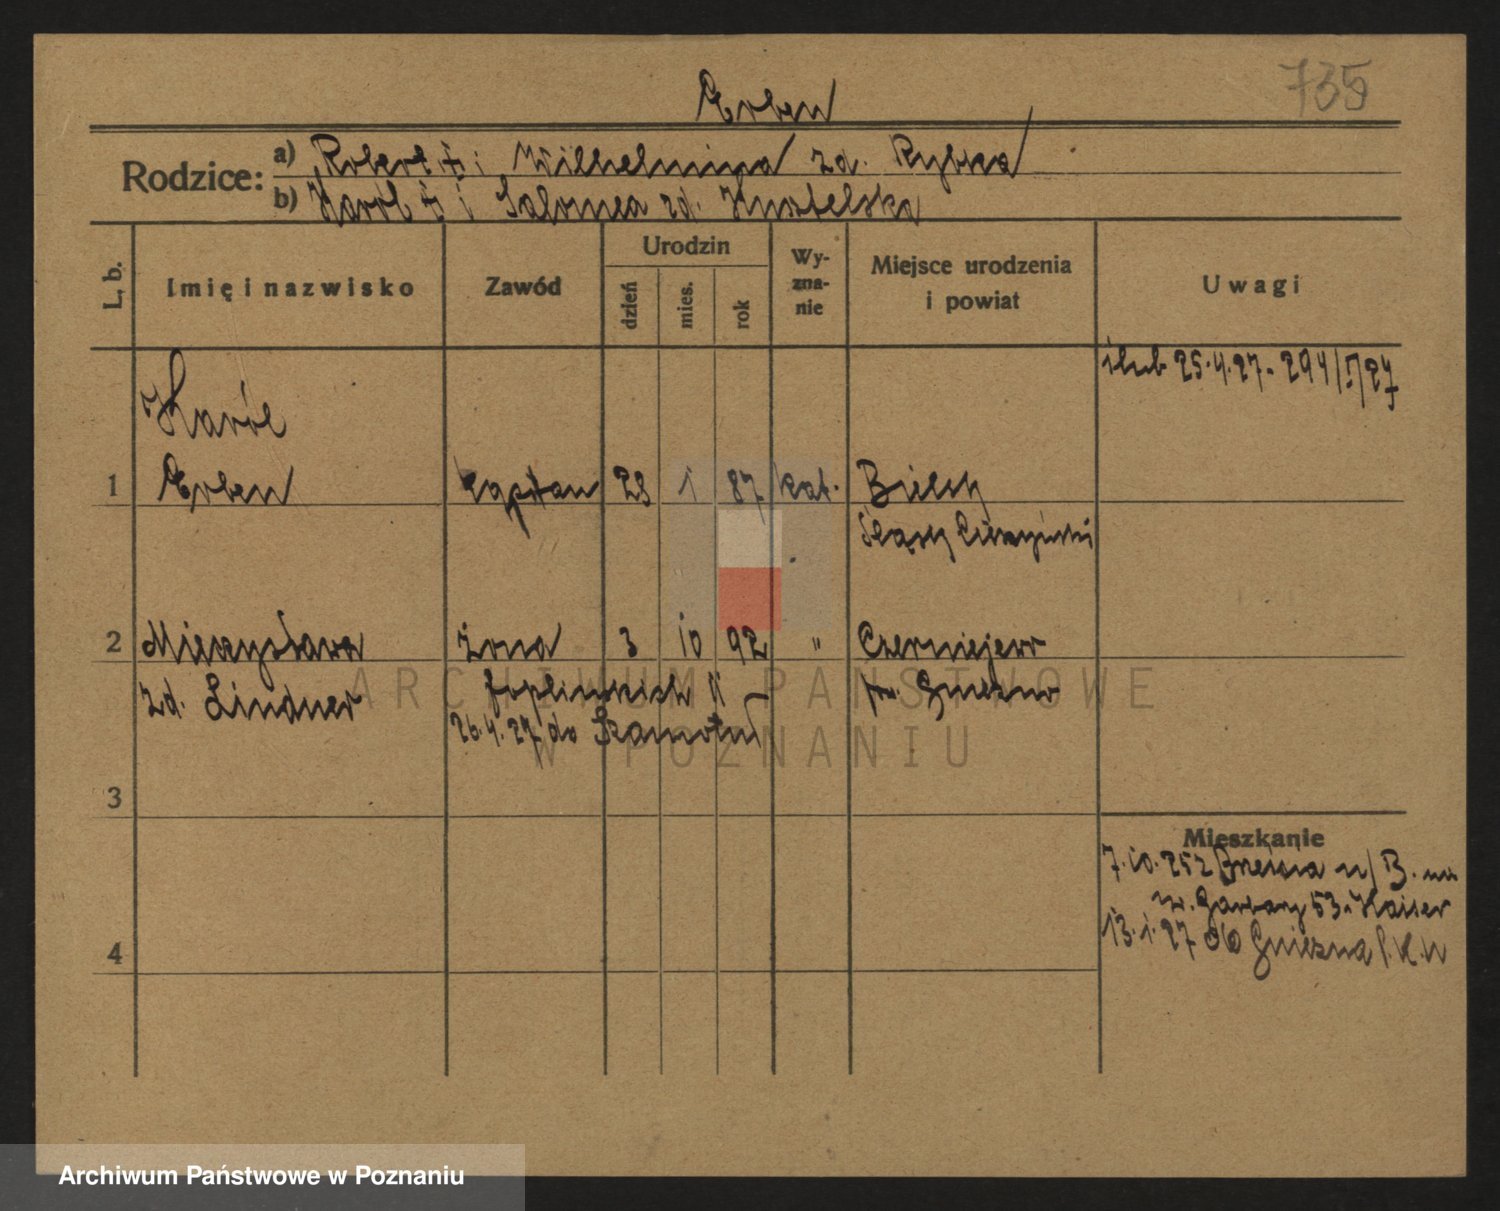 735
Erben
Rodzice: a) Robert † i Wilhelmina zd. Rybka
b) Karol † i Salomea zd. Knobelska
L, b. Imię i nazwisko Zawód Urodzin Wyznanie Miejsce urodzenia i powiat Uwagi
dzień mies. rok
ślub 25.4.27. 294/I/27
Karól
1 Erben kapitan 23 1 87 kat. Bielsk
Śląsk Cieszyński
2 Mieczysława żona 3 10 92 " Czerniejewo
zd. Lindner pow. Gniezno
26.4.27 do Szamotuł
ARCHIWUM PAŃSTWOWE
W POZNANIU
3
Mieszkanie
7.10.25 z Brześcia n/B.
Garbary 53. Kaiser
4
13.1.27 do Gniezna
Archiwum Państwowe w Poznaniu